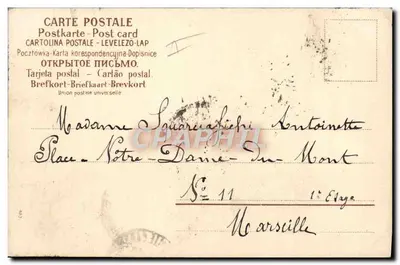 CARTE POSTALE
Postkarte - Post card
CARTOLINA POSTALE - LEVELEZO-LAP
Pocztówka-Karta korespondencyjna-Dopisnice
ОТКРЫТОЕ ПИСЬМО.
Tarjeta postal - Cartão postal
Brefkort-Briefkaart-Brevkort
Union postale universelle
Madame Antoinette
Place-Notre-Dame-du-Mont
No 11 1er Etage
Marseille
CPArama.com